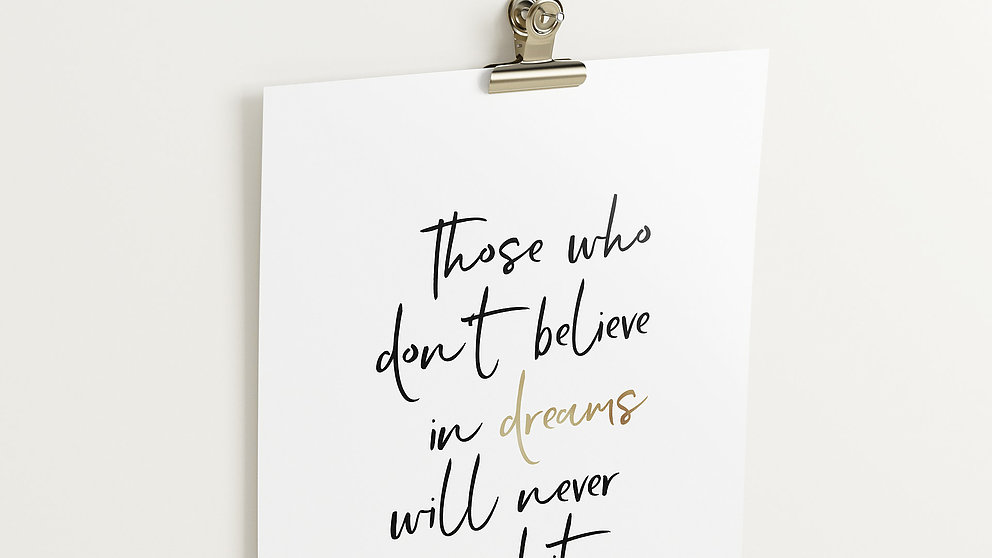 Those who
don't believe
in dreams
will never